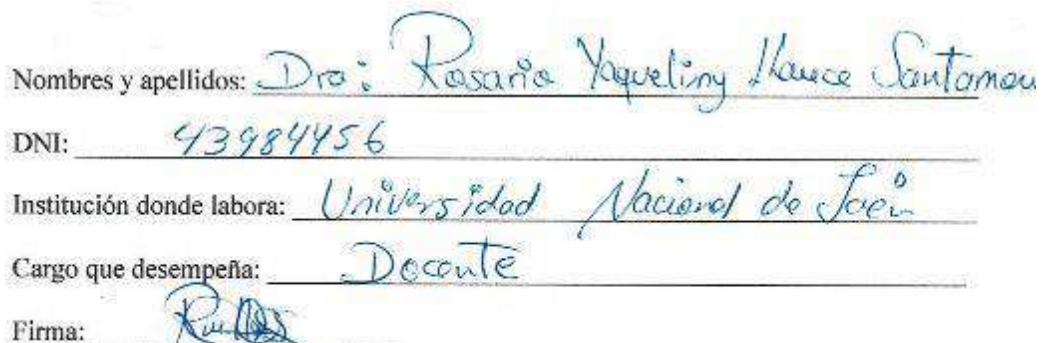 Nombres y apellidos: Dra: Rosario Yaqueliny Llauce Santamar
DNI: 43984456
Institución donde labora: Universidad Nacional de Jaén
Cargo que desempeña: Docente
Firma: